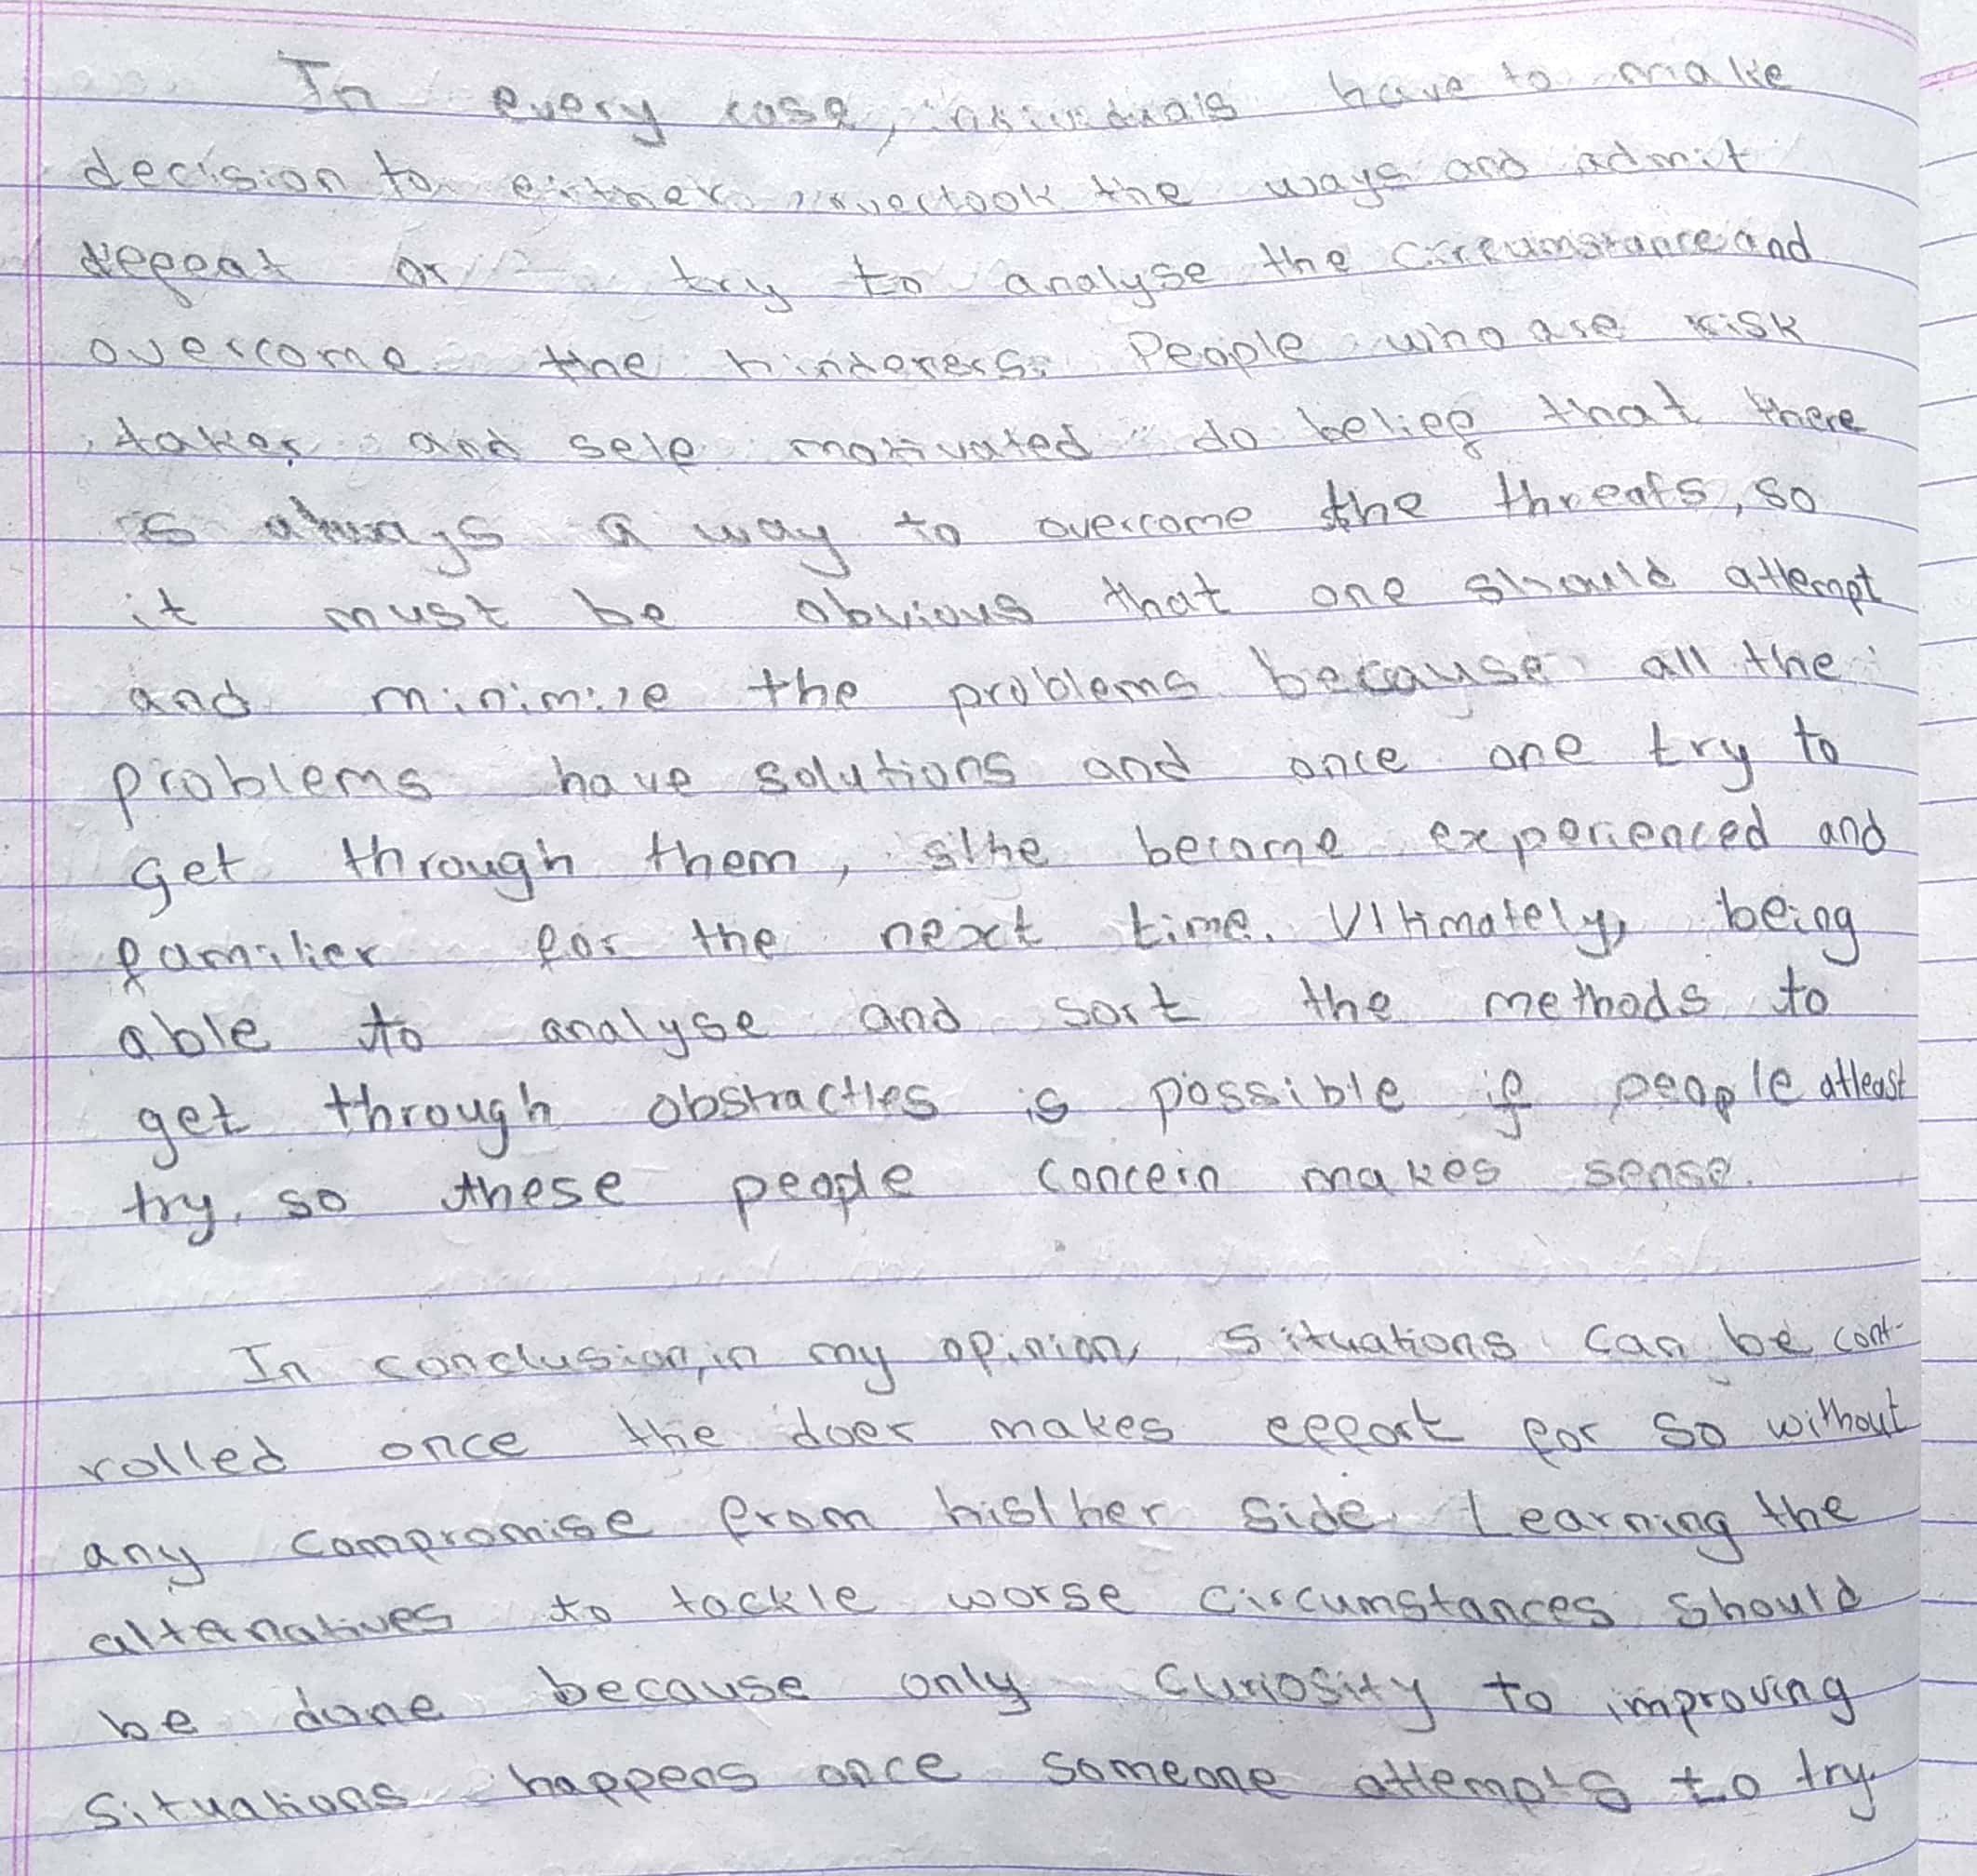 In every case, individuals have to make
decision to either overlook the ways and admit
defeat or try to analyse the circumstance and
overcome the hinderers. People who are risk
taker and self motivated do belief that there
is always a way to overcome the threats, so
it must be obvious that one should attempt
and minimize the problems because all the
problems have solutions and once one try to
get through them, s/he become experienced and
familier for the next time. Ultimately, being
able to analyse and sort the methods to
get through obstractles is possible if people atleast
try, so these people concern makes sense.
In conclusion, in my opinion, situations can be cont-
rolled once the doer makes effort for so without
any compromise from his/her side. Learning the
alternatives to tackle worse circumstances should
be done because only curiosity to improving
situations happens once someone attempts to try.